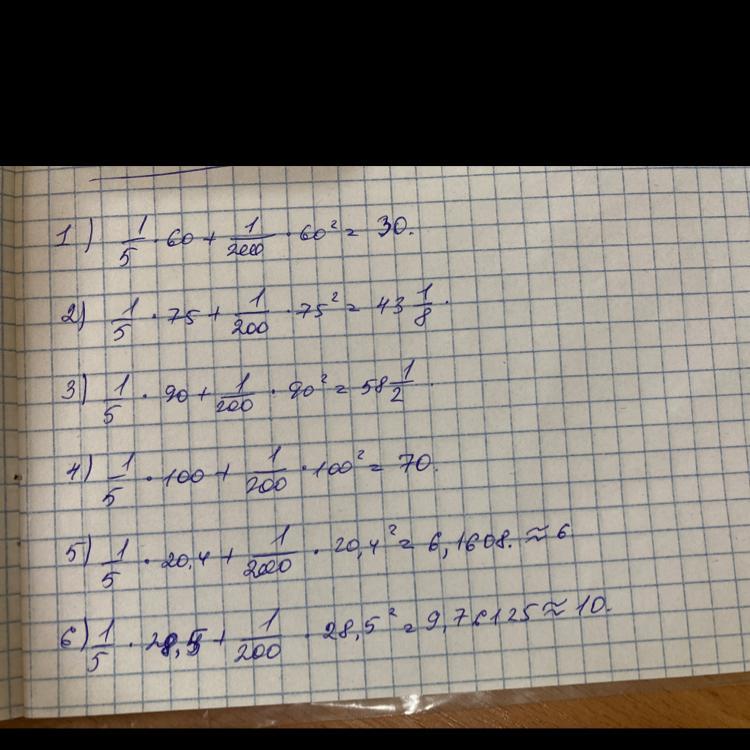 1) 1/5 · 60 + 1/2000 · 60² = 30.
2) 1/5 · 75 + 1/200 · 75² = 43 1/8.
3) 1/5 · 90 + 1/200 · 90² = 58 1/2.
4) 1/5 · 100 + 1/200 · 100² = 70.
5) 1/5 · 20,4 + 1/2000 · 20,4² = 6,1608. ≈ 6
6) 1/5 · 28,5 + 1/200 · 28,5² = 9,76125 ≈ 10.